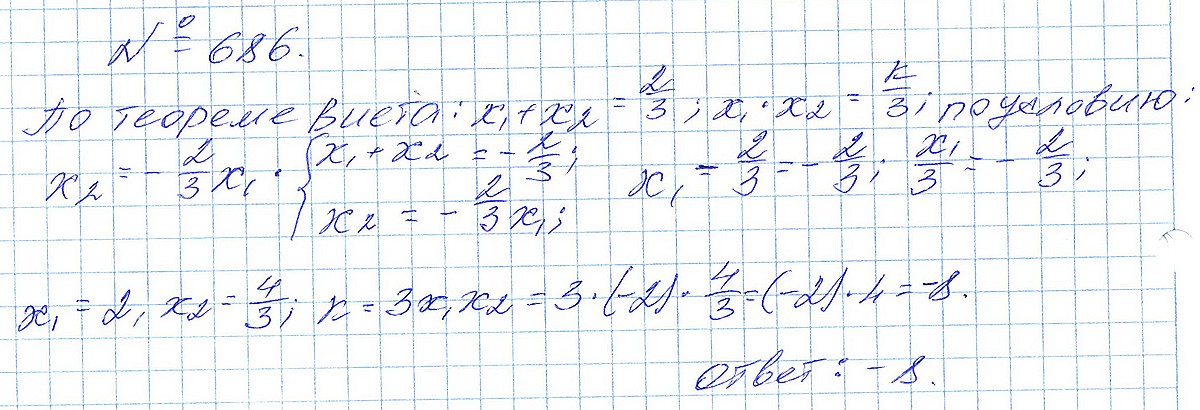 № 686.
По теореме Виета: x₁ + x₂ = 2/3; x₁ · x₂ = к/3; по условию:
x₂ = - 2/3 x₁. { x₁ + x₂ = - 2/3; x₂ = - 2/3 x₁; x₁ - 2/3 = - 2/3; x₁/3 = - 2/3;
x₁ = 2, x₂ = 4/3; к = 3x₁x₂ = 3 · (-2) · 4/3 = (-2) · 4 = -8.
Ответ: -8.